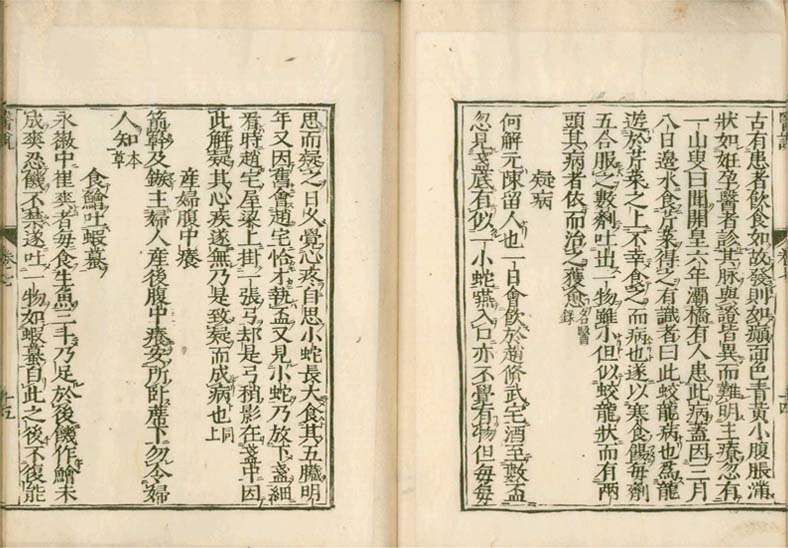 古有患者飲食如故發則如癲面色青黃小腹脹滿
狀如妊孕醫者診其脉與證皆異而難明主療忽有
一山叟曰聞開皇六年灞橋有人患此病蓋因三月
八日邊水食芹菜得之有識者曰此蛟龍病也爲龍
遊於芹菜之上不幸食之而病也遂以寒食餳每劑
五合服之數劑吐出一物雖小但似蛟龍狀而有兩
頭其病者依而治之獲愈名醫録
疑病
何解元陳留人也一日會飲於趙修武宅酒至數盃
忽見盞底有似一小蛇嚥入口亦不覺有物但每每
醫說
卷七
十四
思而疑之日久覺心疼自思小蛇長大食其五臟明
年又因舊會趙宅恰才執盃又見小蛇乃放下盞細
看時趙宅屋梁上掛一張弓却是弓稍影在盞中因
此解疑其心疾遂無乃是致疑而成病也同上
産婦腹中癢
箭簳及鏃主婦人産後腹中癢安所卧蓆下勿令婦
人知本草
食鱠吐蝦蟇
永徽中崔爽者每食生魚三斗乃足於後饑作鱠未
成爽忍饑不禁遂吐一物如蝦蟇自此之後不復能
醫說
卷七
十五